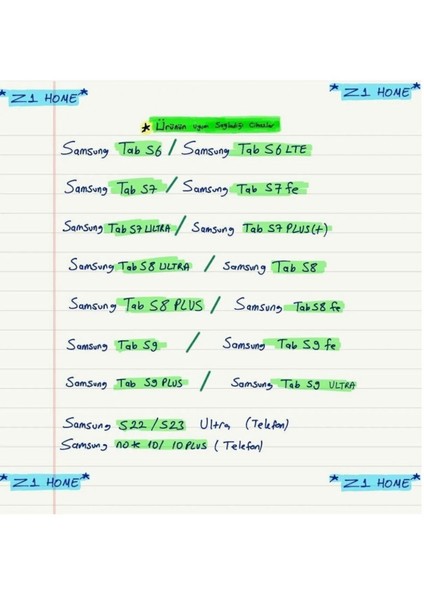 *Z1 HOME* *Z1 HOME*
* Ürünün uyum Sağladığı Cihazlar
Samsung Tab S6 / Samsung Tab S6 LTE
Samsung Tab S7 / Samsung Tab S7 fe
Samsung Tab S7 ULTRA / Samsung Tab S7 PLUS(+)
Samsung Tab S8 ULTRA / Samsung Tab S8
Samsung Tab S8 PLUS / Samsung Tab S8 fe
Samsung Tab S9 / Samsung Tab S9 fe
Samsung Tab S9 PLUS / Samsung Tab S9 ULTRA
Samsung S22 / S23 Ultra (Telefon)
Samsung note 10/ 10 PLUS (Telefon)
*Z1 HOME* *Z1 HOME*